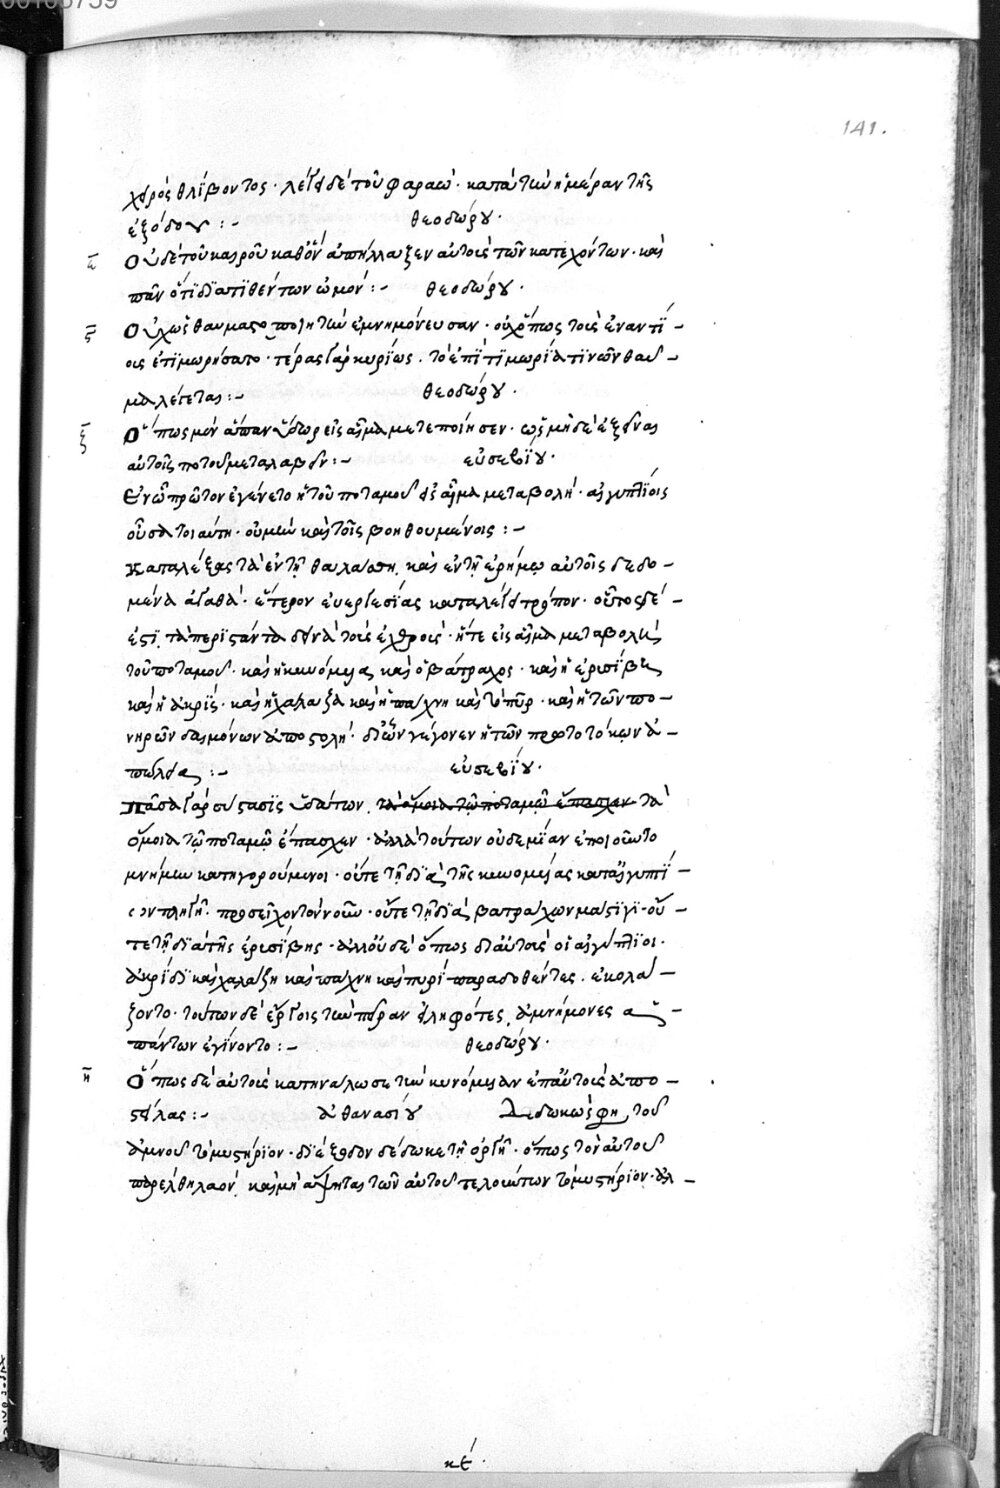 00105759
141.
χειρὸς θλίβοντος· λέγει δὲ τοῦ φαραώ· κατὰ τὴν ἡμέραν τῆς
ἐξόδου :- θεοδώρου.
Οὐδὲ τοῦ καιροῦ καθ' ὃν ἀπήλλαξεν αὐτοὺς τῶν κατεχόντων· καὶ
πᾶν ὁτι διατιθέντων ὠμόν :- θεοδώρου.
ς Οὐχ ὡς θαυματοποιητὴν ἐμνημόνευσαν· οὐχ ὅπως τοὺς ἐναντί-
οις ἐτιμωρήσατο· τέρας γὰρ κυρίως· τὸ ἐπὶ τιμωρίᾳ τινῶν θαυ-
μα λέγεται :- θεοδώρου.
ζ Ὅπως μὲν ἅπαν ὕδωρ εἰς αἷμα μετεποίησεν· ὡς μὴδὲ ἐξεῖναι
αὐτοῖς ποτοῦ μεταλαβεῖν :- εὐσεβίου.
Ἐν ᾧ πρῶτον ἐγένετο ἡ τοῦ ποταμοῦ εἰς αἷμα μεταβολή· αἰγυπτίοις
οὖσα τοιαύτη· οὐ μὴν καὶ τοῖς βοηθουμένοις :-
Καταλέξας τὰ ἐν τῇ θαλάσσῃ, καὶ ἐν τῇ ἐρήμῳ αὐτοῖς δεδο-
μένα ἀγαθά· ἕτερον εὐεργεσίας καταλέγει τρόπον· οὗτος δέ-
ἐστι, τὰ περιστάντα δεινὰ τοὺς ἐχθρούς· ἥτε εἰς αἷμα μεταβολὴ
τοῦ ποταμοῦ· καὶ ἡ κυνόμυια καὶ ὁ βάτραχος· καὶ ἡ ἐρισίβη
καὶ ἡ ἀκρίς· καὶ ἡ χάλαζα καὶ ἡ πάχνη καὶ τὸ πῦρ· καὶ ἡ τῶν πο-
νηρῶν δαιμόνων ἀποστολή· δι' ὧν γέγονεν ἡ τῶν πρωτοτόκων ἀ-
πώλεια :- εὐσεβίου.
Πᾶσα γὰρ σύστασις ὑδάτων, τὰ ὅμοια τῷ ποταμῷ ἔπασχεν τὰ
ὅμοια τῷ ποταμῷ ἔπασχεν· ἀλλὰ τούτων οὐδεμίαν ἐποιοῦντο
μνήμην κατηγορούμενοι· οὔτε τῇ διὰ τῆς κυνομυίας κατ' αἰγυπτί-
ων πληγῇ· προσεῖχον τὸν νοῦν· οὔτε τῇ διὰ βατράχων μάστιγι· οὔ-
τε τῇ διὰ τῆς ἐρισίβης· ἀλλ' οὐδὲ ὅπως δι' αὐτοὺς οἱ αἰγύπτιοι·
ἀκρίδι καὶ χαλάζῃ καὶ πάχνῃ καὶ πυρὶ παραδοθέντες· ἐκολά-
ζοντο· τούτων δὲ ἔργοις τὴν πεῖραν εἰληφότες, ἀμνήμονες ἁ-
πάντων ἐγίνοντο :- θεοδώρου.
η Ὅπως δὲ αὐτοὺς κατηνάλωσε τὴν κυνόμυιαν ἐπ' αὐτοὺς ἀπο-
στείλας :- ἀθανασίου Διδωκὼς φη, τοῦ
ἀμνοῦ τὸ μυστήριον· διέξοδον δέδωκε τῇ ὀργῇ· ὅπως τὸν αὐτοῦ
παρέλθῃ λαόν, καὶ μὴ ἅψηται τῶν αὐτοῦ τελούντων τὸ μυστήριον· ἀλ-
κε.